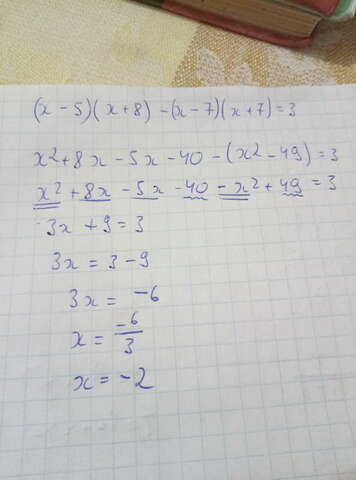 (x - 5)(x + 8) - (x - 7)(x + 7) = 3
x² + 8x - 5x - 40 - (x² - 49) = 3
x² + 8x - 5x - 40 - x² + 49 = 3
3x + 9 = 3
3x = 3 - 9
3x = -6
x = -6/3
x = -2